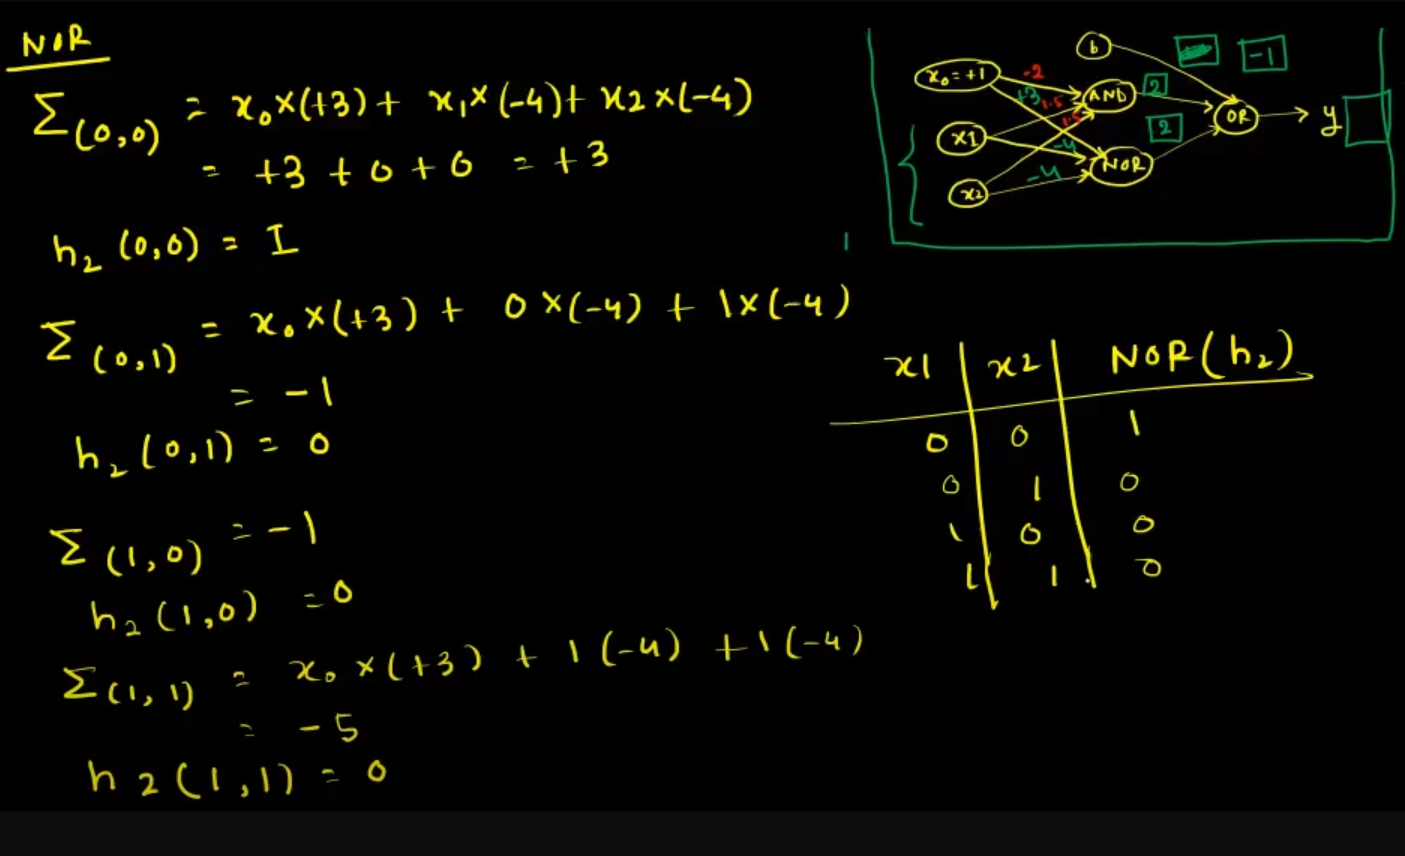 NOR
Σ(0,0) = x₀×(+3) + x₁×(-4)+ x2×(-4)
= +3 + 0 + 0 = +3
h₂ (0,0) = I
Σ(0,1) = x₀×(+3) + 0×(-4) + 1×(-4)
= -1
h₂(0,1) = 0
Σ(1,0) = -1
h₂(1,0) = 0
Σ(1,1) = x₀×(+3) + 1(-4) +1(-4)
= -5
h2(1,1) = 0
b
-1
x₀=+1
-2
+3
1.5
AND
2
OR
y
x1
1.5
2
-4
NOR
x2
-4
1
x1 x2 NOR(h₂)
0 0 1
0 1 0
1 0 0
1 1 0